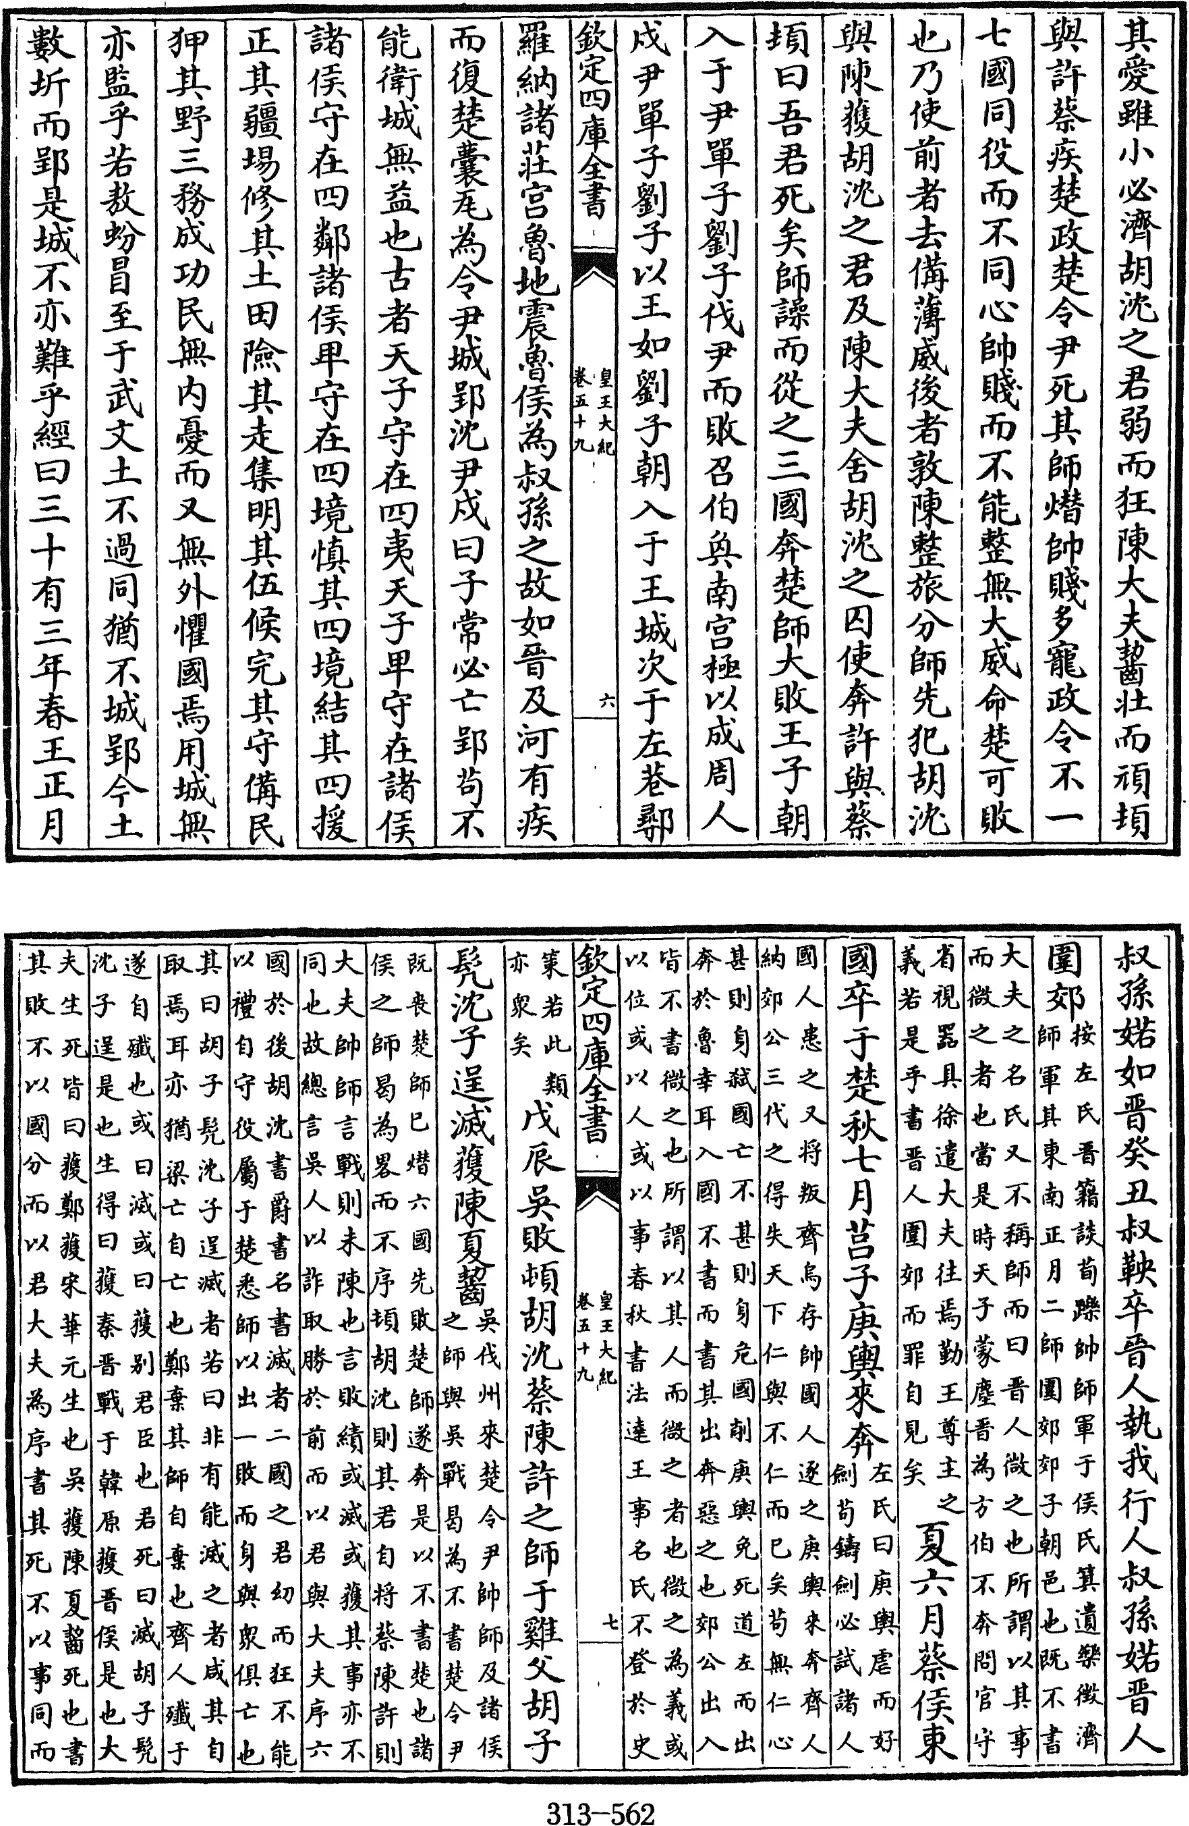 其愛雖小必濟胡沈之君弱而狂陳大夫齧壯而頑頓
與許蔡疾楚政楚令尹死其師熸帥賤多寵政令不一
七國同役而不同心帥賤而不能整無大威命楚可敗
也乃使前者去備薄威後者敦陳整旅分師先犯胡沈
與陳獲胡沈之君及陳大夫舍胡沈之囚使奔許與蔡
頓曰吾君死矣師譟而從之三國奔楚師大敗王子朝
入于尹單子劉子伐尹而敗召伯奐南宫極以成周人
戍尹單子劉子以王如劉子朝入于王城次于左巷鄩
欽定四庫全書
皇王大紀
卷五十九
六
羅納諸莊宫魯地震魯侯為叔孫之故如晉及河有疾
而復楚囊瓦為令尹城郢沈尹戍曰子常必亡郢茍不
能衛城無益也古者天子守在四夷天子卑守在諸侯
諸侯守在四鄰諸侯卑守在四境慎其四境結其四援
正其疆場修其土田險其走集明其伍候完其守備民
狎其野三務成功民無内憂而又無外懼國焉用城無
亦監乎若敖蚡冒至于武文土不過同猶不城郢今土
數圻而郢是城不亦難乎經曰三十有三年春王正月
叔孫婼如晉癸丑叔鞅卒晉人執我行人叔孫婼晉人
圍郊
按左氏晉籍談荀躒帥師軍于侯氏箕遺樂徵濟
師軍其東南正月二師圍郊郊子朝邑也既不書
大夫之名氏又不稱師而曰晉人微之也所謂以其事
而微之者也當是時天子蒙塵晉為方伯不奔問官守
省視器具徐遣大夫往焉勤王尊主之
義若是乎書晉人圍郊而罪自見矣
夏六月蔡侯東
國卒于楚秋七月莒子庚輿來奔
左氏曰庚輿虐而好
劍茍鑄劍必試諸人
國人患之又將叛齊烏存帥國人逐之庚輿來奔齊人
納郊公三代之得失天下仁與不仁而已矣茍無仁心
甚則身弑國亡不甚則身危國削庚輿免死道左而出
奔於魯幸耳入國不書而書其出奔惡之也郊公出入
皆不書微之也所謂以其人而微之者也微之為義或
以位或以人或以事春秋書法達王事名氏不登於史
欽定四庫全書
皇王大紀
卷五十九
七
策若此類
亦衆矣
戊辰吳敗頓胡沈蔡陳許之師于雞父胡子
髠沈子逞滅獲陳夏齧
吳伐州來楚令尹帥師及諸侯
之師與吳戰曷為不書楚令尹
既喪楚師已熸六國先敗楚師遂奔是以不書楚也諸
侯之師曷為畧而不序頓胡沈則其君自將蔡陳許則
大夫帥師言戰則未陳也言敗績或滅或獲其事亦不
同也故總言吳人以詐取勝於前而以君與大夫序六
國於後胡沈書爵書名書滅者二國之君幼而狂不能
以禮自守役屬于楚悉師以出一敗而身與衆俱亡也
其曰胡子髠沈子逞滅者若曰非有能滅之者咸其自
取焉耳亦猶梁亡自亡也鄭棄其師自棄也齊人殱于
遂自殱也或曰滅或曰獲别君臣也君死曰滅胡子髠
沈子逞是也生得曰獲秦晉戰于韓原獲晉侯是也大
夫生死皆曰獲鄭獲宋華元生也吳獲陳夏齧死也書
其敗不以國分而以君大夫為序書其死不以事同而
313-562